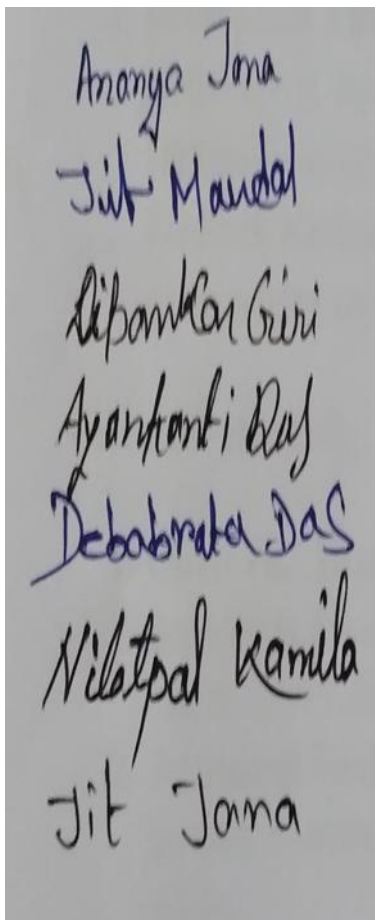 Ananya Jana
Jit Mandal
Dipankar Giri
Ayankanti Das
Debabrata Das
Nilotpal Kamila
Jit Jana